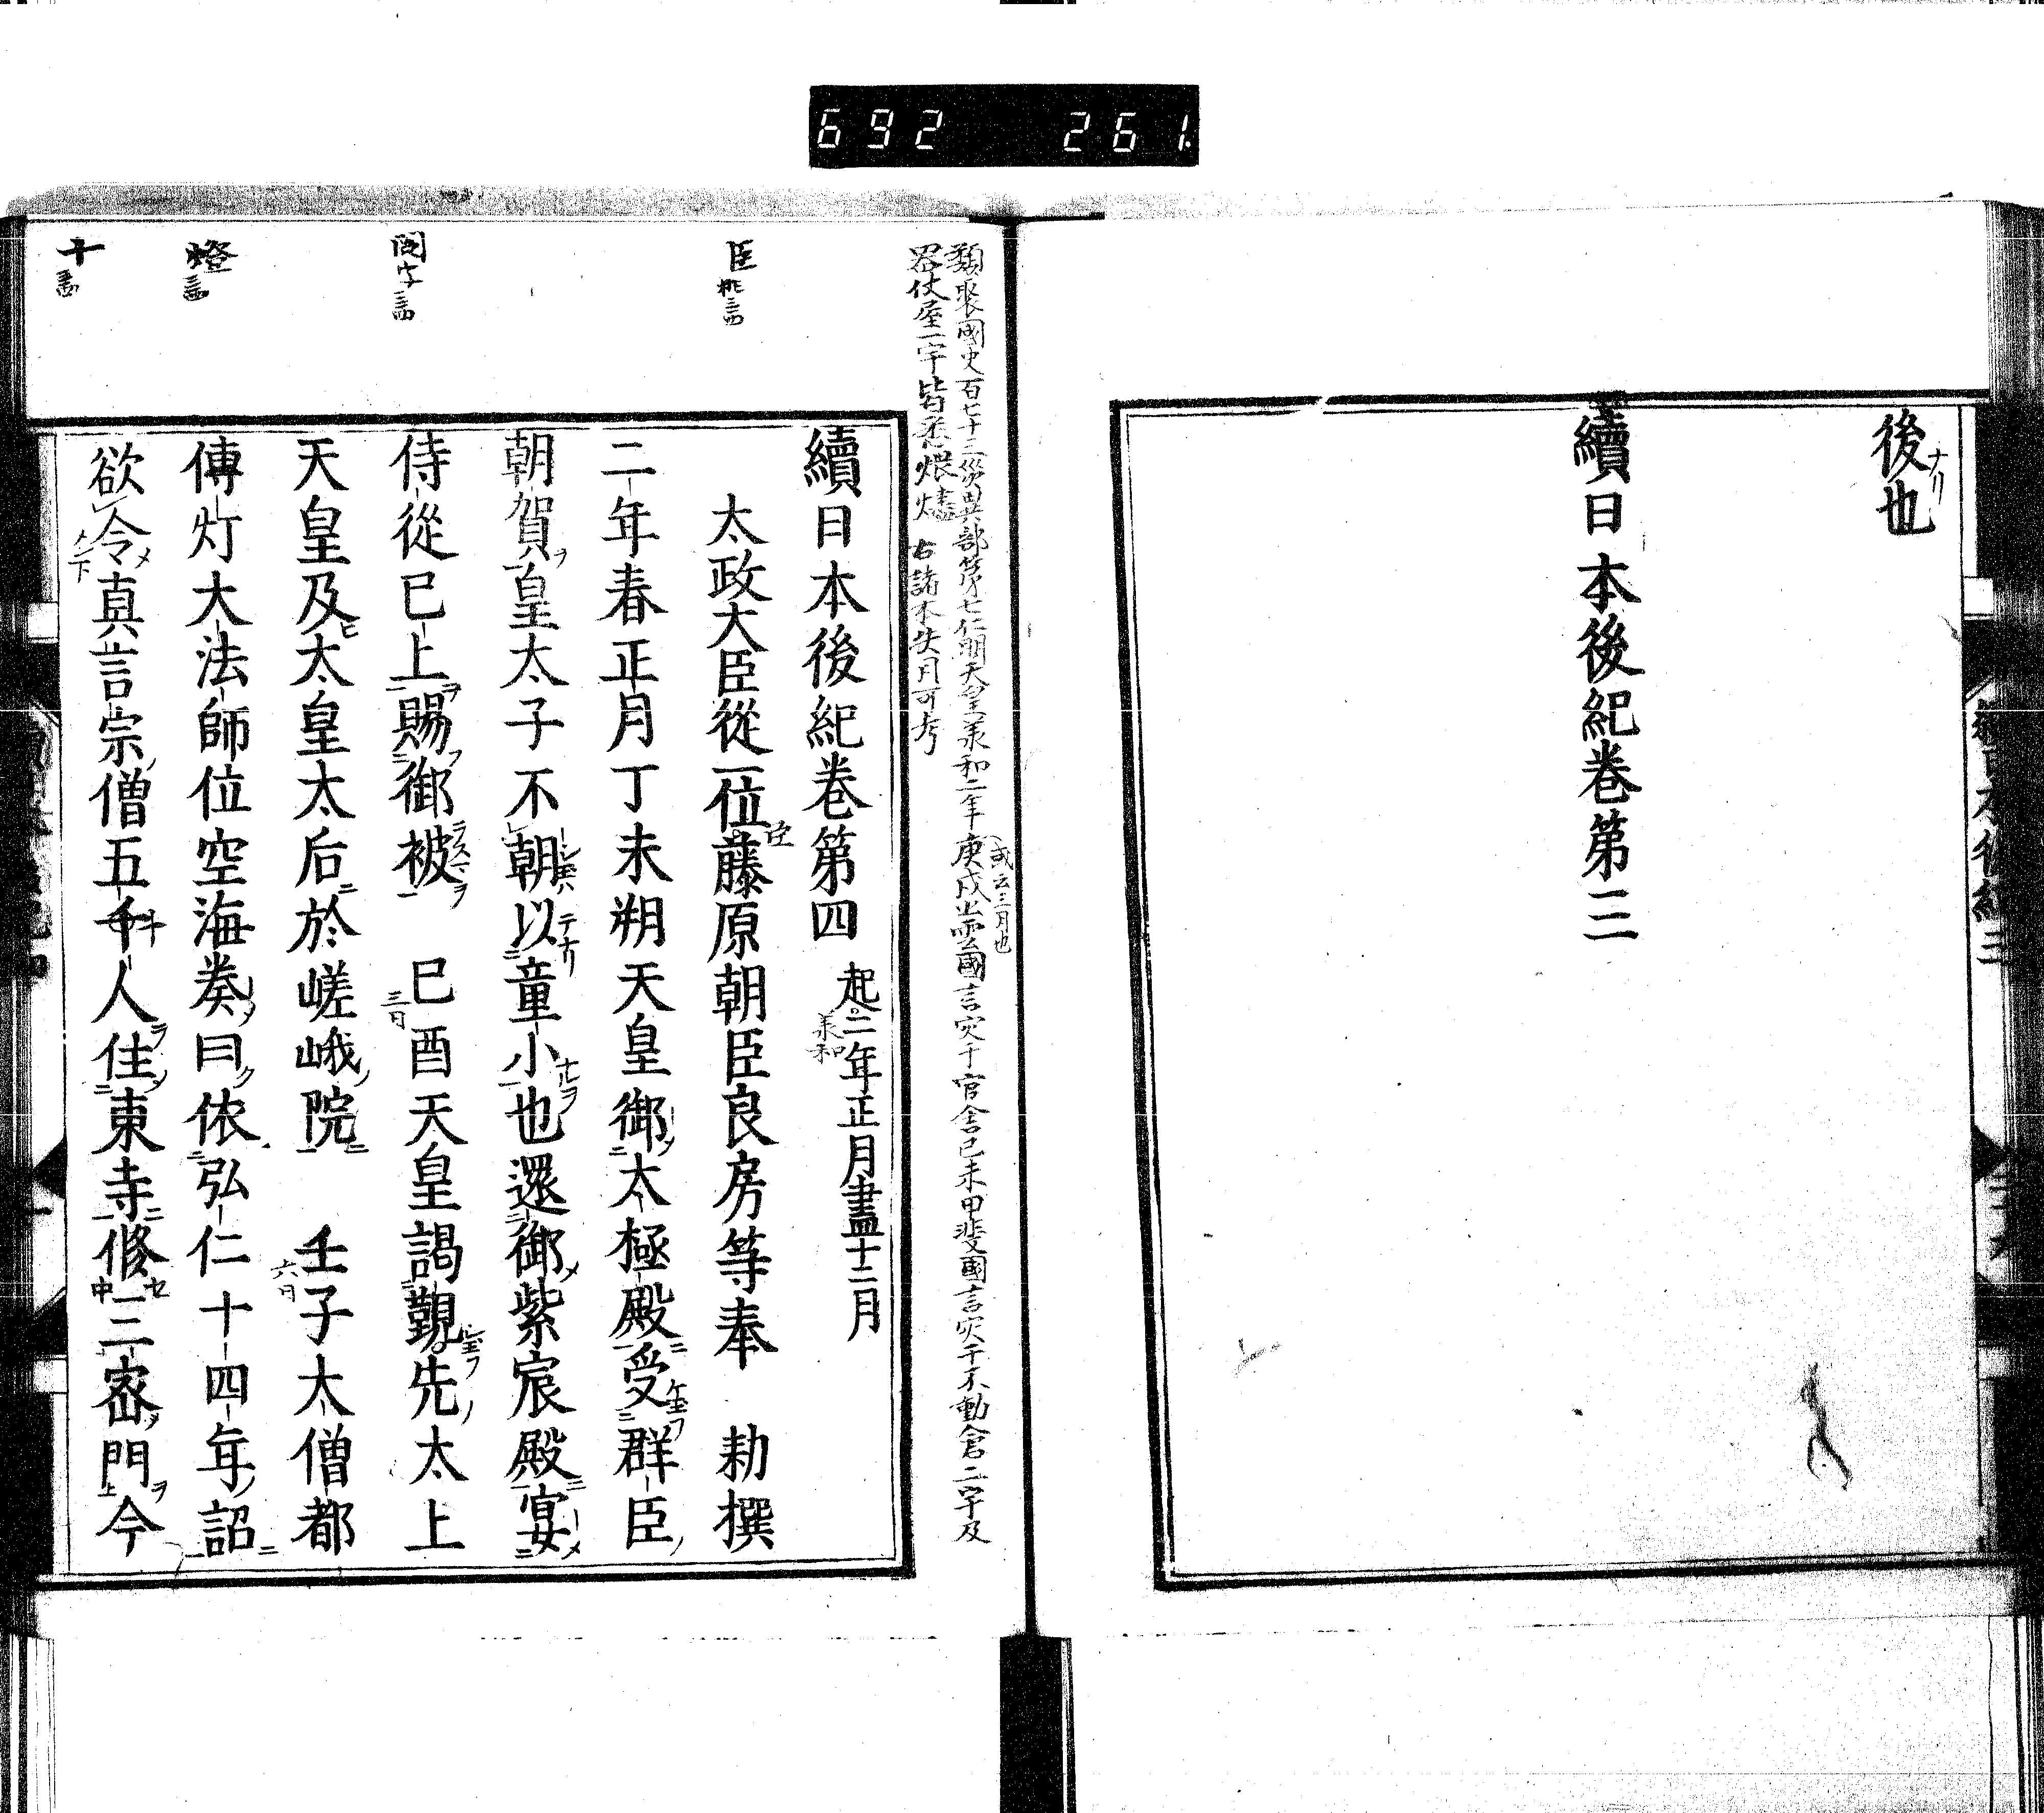 692 261
後也
續日本後紀卷第三
類聚國史百七十三災異部第七仁明天皇羕和二年庚戌出雲國言灾于官舍己未甲斐國言灾于不動倉二宇及
或云三月也
器仗屋一宇皆悉煨燼 右諸本失月可考
臣
續日本後紀卷第四 起二年正月盡十二月
羕和
太政大臣從一位藤原朝臣良房等奉 勅撰
臣
二年春正月丁未朔天皇御太極殿受群臣
朝賀皇太子不朝以童小也還御紫宸殿宴
侍從已上賜御被 己酉天皇謁覲先太上
三日
天皇及太皇太后於嵯峨院 壬子太僧都
六日
燈
傳灯大法師位空海奏曰依弘仁十四年詔
十
欲令真言宗僧五千人住東寺修三密門今